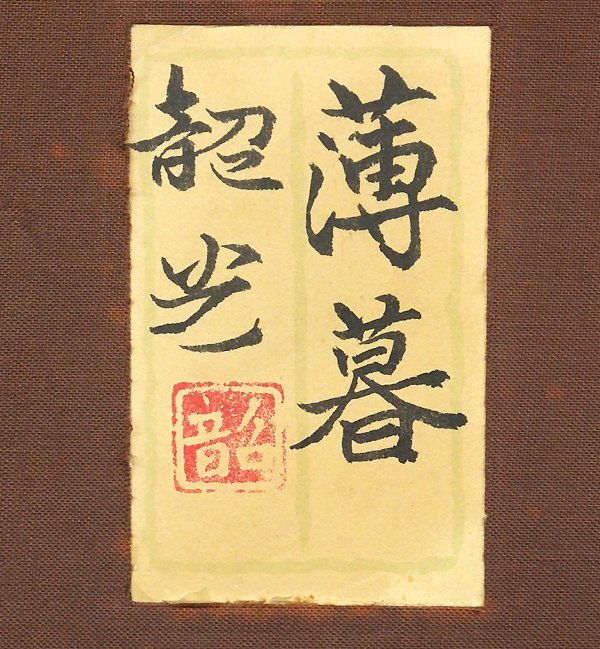 薄暮
韶光
韶